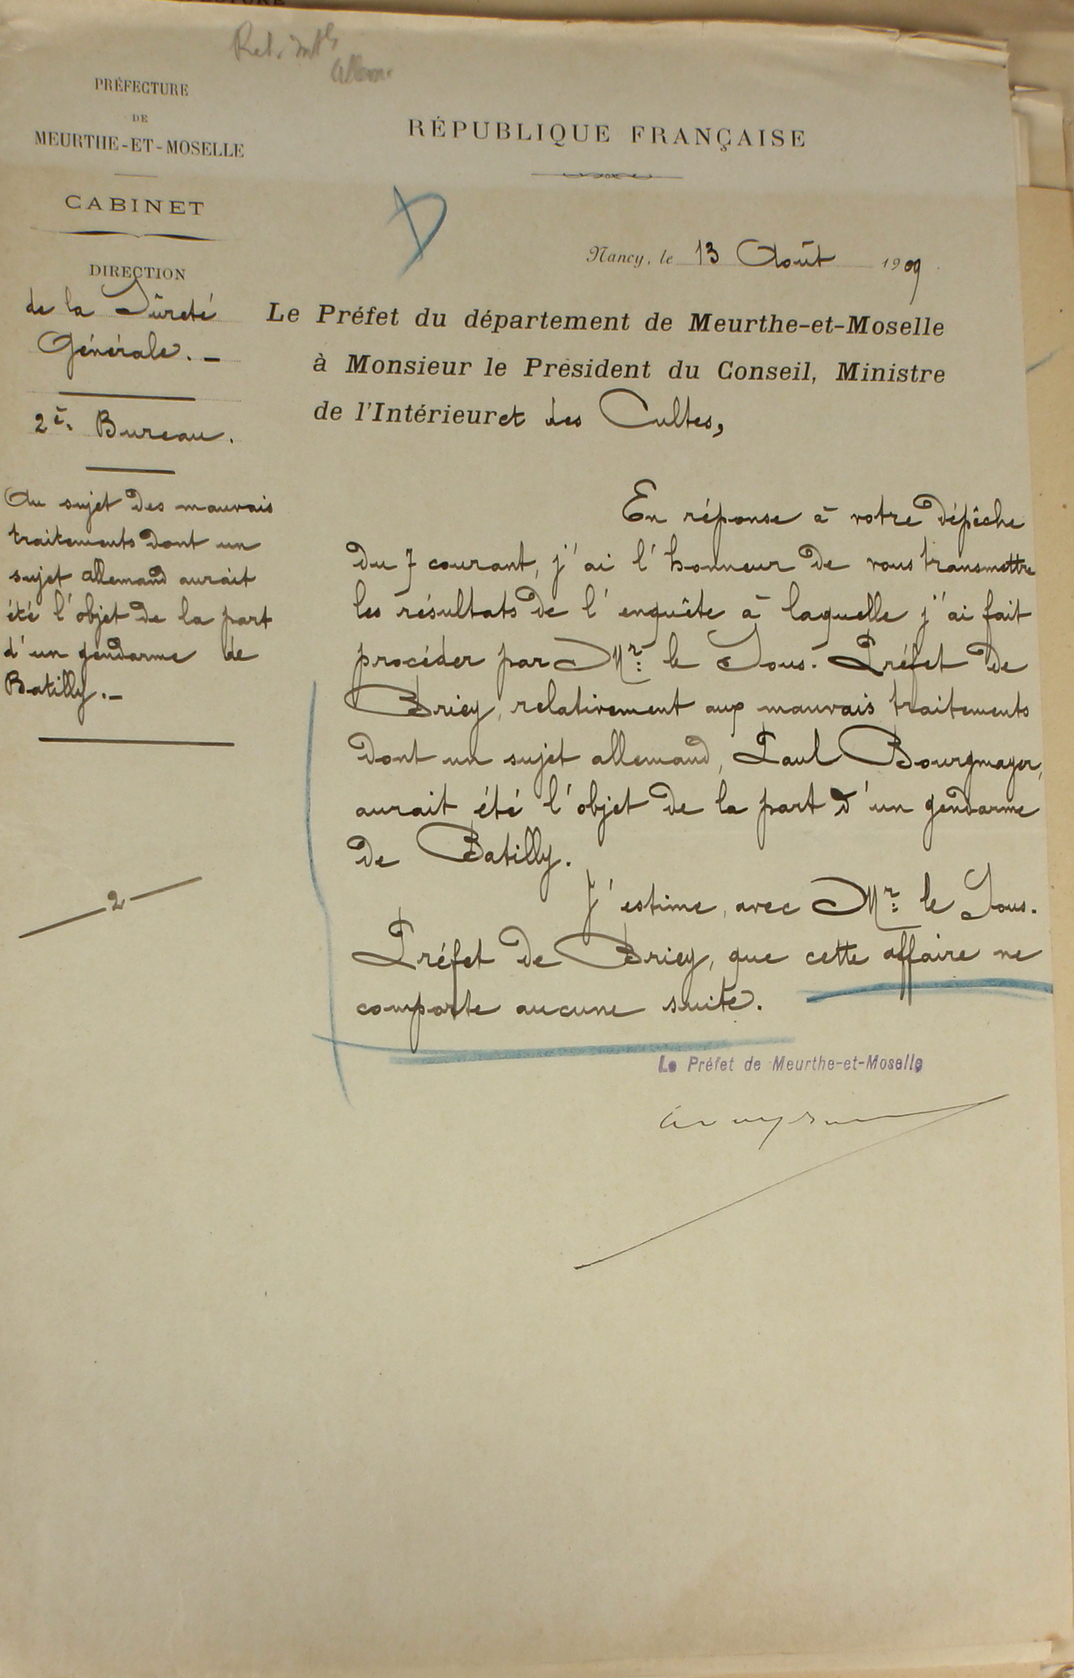 PRÉFECTURE
DE
MEURTHE-ET-MOSELLE
CABINET
DIRECTION
de la Sûreté
Générale. _
2e. Bureau.
Au sujet des mauvais
traitements dont un
sujet allemand aurait
été l'objet de la part
d'un gendarme de
Batilly. _
2
RÉPUBLIQUE FRANÇAISE
Nancy, le 13 Août 1909
Le Préfet du département de Meurthe-et-Moselle
à Monsieur le Président du Conseil, Ministre
de l'Intérieur et des Cultes,
En réponse à votre dépêche
du 7 courant, j'ai l'honneur de vous transmettre
les résultats de l'enquête à laquelle j'ai fait
procéder par Mr. le Sous-Préfet de
Briey, relativement aux mauvais traitements
dont un sujet allemand, Paul Bourgmayer,
aurait été l'objet de la part d'un gendarme
de Batilly.
J'estime, avec Mr. le Sous-
Préfet de Briey, que cette affaire ne
comporte aucune suite.
Le Préfet de Meurthe-et-Moselle